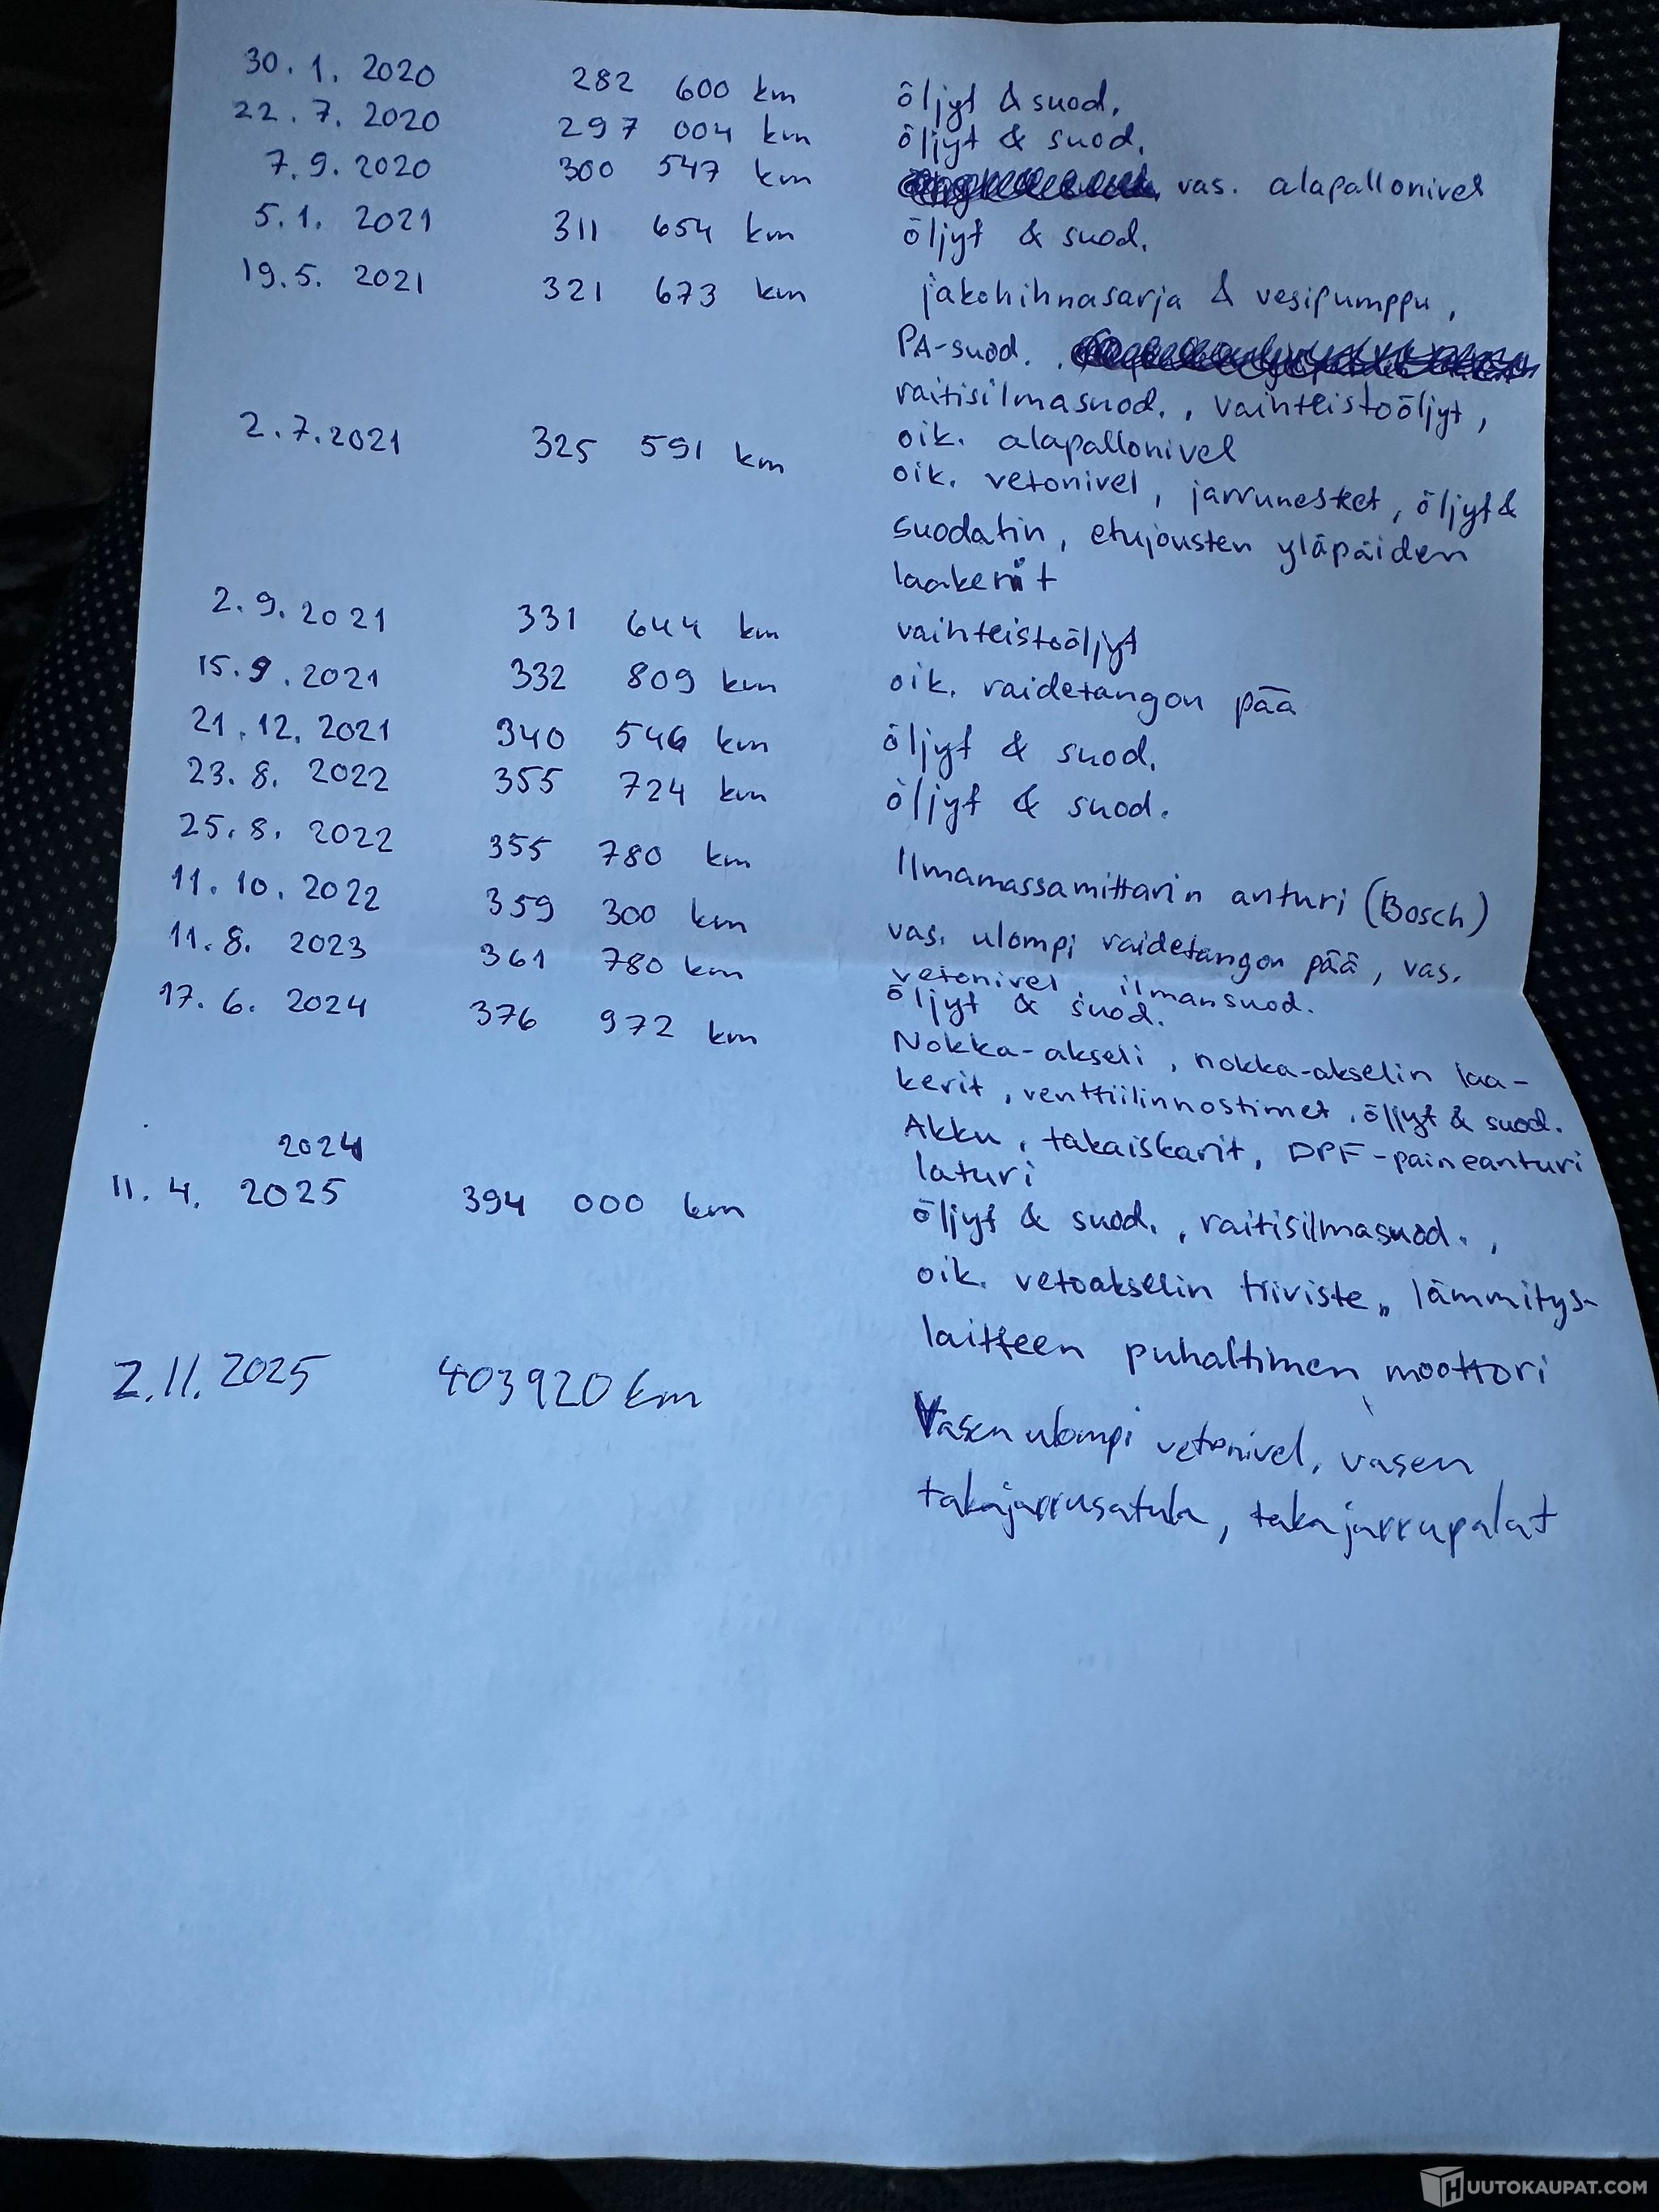 30.1.2020 282 600 km öljyt & suod.
22.7.2020 297 004 km öljyt & suod.
7.9.2020 300 547 km vas. alapallonivel
5.1.2021 311 654 km öljyt & suod.
19.5.2021 321 673 km jakohihnasarja & vesipumppu,
PA-suod.,
raitisilmasuod., vaihteistoöljyt,
oik. alapallonivel
2.7.2021 325 591 km oik. vetonivel, jarrunesteet, öljyt &
suodatin, etujousten yläpäiden
laakerit
2.9.2021 331 644 km vaihteistoöljyt
15.9.2021 332 809 km oik. raidetangon pää
21.12.2021 340 546 km öljyt & suod.
23.8.2022 355 724 km öljyt & suod.
25.8.2022 355 780 km Ilmamassamittarin anturi (Bosch)
11.10.2022 359 300 km vas. ulompi raidetangon pää, vas.
vetonivel, ilmansuod.
11.8.2023 361 780 km öljyt & suod.
17.6.2024 376 972 km Nokka-akseli, nokka-akselin laa-
kerit, venttiilinnostimet, öljyt & suod.
2024 Akku, takaiskarit, DPF-paineanturi
laturi
11.4.2025 394 000 km öljyt & suod., raitisilmasuod.,
oik. vetoakselin tiiviste, lämmitys-
laitteen puhaltimen moottori
2.11.2025 403920 km Vasen ulompi vetonivel, vasen
takajarrusatula, takajarrupalat
HUUTOKAUPAT.COM